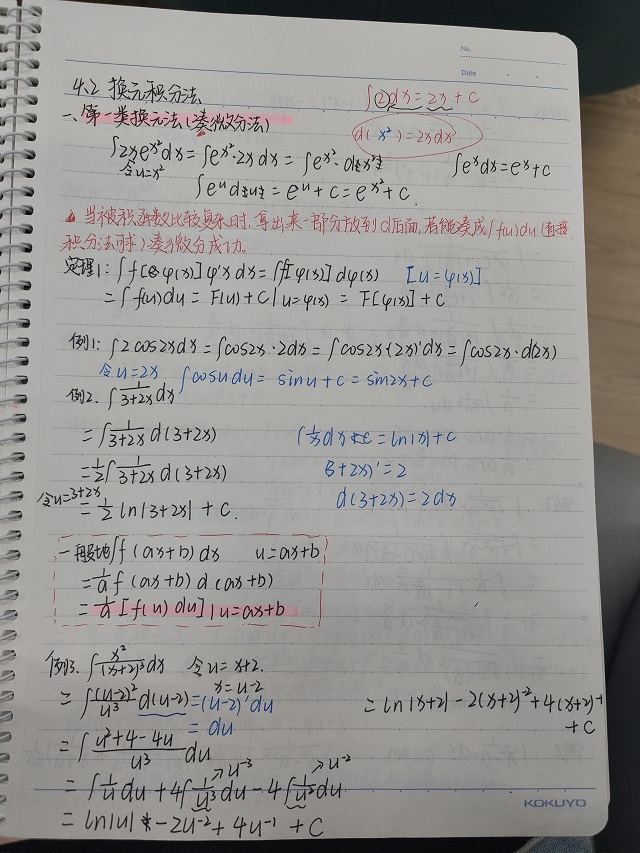 No.
Date
4.2 换元积分法
∫2dx=2x+C
一、第一类换元法(凑微分法)
d(x²)=2xdx
∫2xe^{x²}dx=∫e^{x²}·2xdx=∫e^{x²}·dx²
∫e^x dx=e^x+C
令u=x²
∫e^u du=e^u+C=e^{x²}+C.
▲当被积函数比较复杂时,拿出来一部分放到d后面,若能凑成∫f(u)du(直接
积分法时)凑微分成功.
定理1:∫f[φ(x)]φ'xdx=∫f[φ(x)]dφ(x) [u=φ(x)]
=∫f(u)du=F(u)+C|u=φ(x)=F[φ(x)]+C
例1:∫2cos2xdx=∫cos2x·2dx=∫cos2x·(2x)'dx=∫cos2x·d(2x)
令u=2x ∫cosudu=sinu+C=sin2x+C
例2.∫\frac{1}{3+2x}dx
=∫\frac{1}{3+2x}d(3+2x)
∫\frac{1}{x}dx=ln|x|+C
=\frac{1}{2}∫\frac{1}{3+2x}d(3+2x)
(3+2x)'=2
令u=3+2x
d(3+2x)=2dx
=\frac{1}{2}ln|3+2x|+C.
一般地∫f(ax+b)dx u=ax+b
=\frac{1}{a}f(ax+b)d(ax+b)
=\frac{1}{a}[f(u)du]|u=ax+b
例3.∫\frac{x²}{(x+2)³}dx 令u=x+2.
x=u-2
=∫\frac{(u-2)²}{u³}d(u-2)=(u-2)'du
=du
=∫\frac{u²+4-4u}{u³}du
=∫\frac{1}{u}du+4∫\frac{1}{u³}du-4∫\frac{1}{u²}du
→u⁻³ →u⁻²
=ln|u|-2u⁻²+4u⁻¹+C
=ln|x+2|-2(x+2)⁻²+4(x+2)⁻¹
+C
KOKUYO